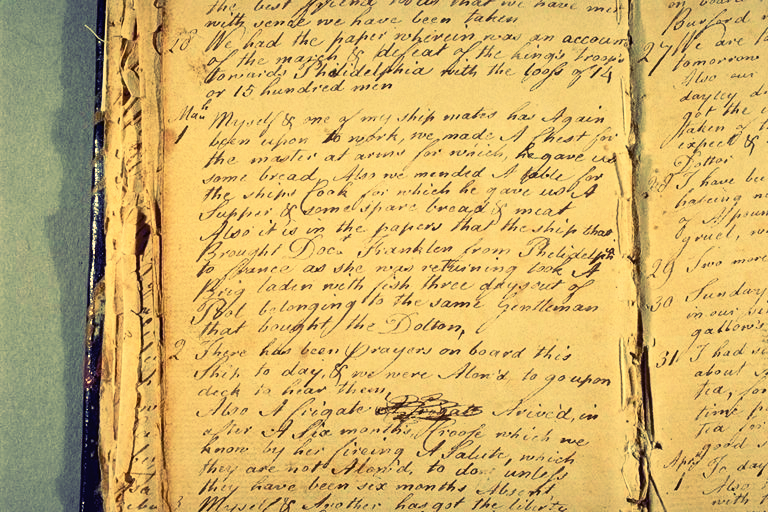 the best friend now that we have met
with sence we have been taken
28 We had the paper wherein was an account
of the march & defeat of the kings troops
towards Philidelphia with the loss of 14
or 15 hundred men
Mauh
1 Myself & one of my ship mates has Again
been upon to work, we made A Chest for
the master at arms for which, he gave us
some bread, Also we mended A table for
the ships Cook for which he gave us A
Supper & some spare bread & meat
Also it is in the papers that the ship that
Brought Docr Franklen from Philidelphia
to france as she was returning took A
Brig laden with fish three days out of
Pool belonging to the same Gentleman
that bought the Dolton,
2 There has been Prayers on board this
Ship to day, & we were Alow'd, to go upon
deck to hear them,
Also A frigate Arived, in
after A Six months, Croose which we
know by her fireing A Salute, which
they are not Alow'd, to do unless
they have been six months Absent
3 Myself & Another has got the liberty
on board
Burford
27 We are
tomorrow
Also our
dayley
got the
taken
expect &
Dottor
28 I have be
haveing no
of A
gruel, w
29 Two more
30 Sunday
in our
gallows
31 I had
about
tea, for
time p
Tea for
good
Aprl
1 To day
Also
with t